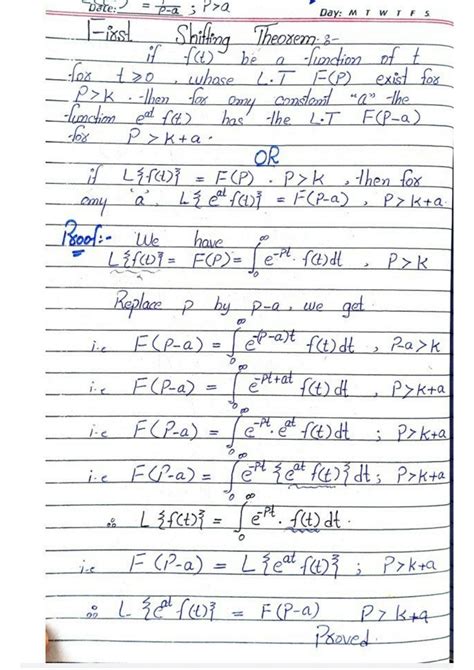 Date: = 1/p-a ; P>a
Day: M T W T F S
First Shifting Theorem :-
if f(t) be a function of t
for t≥0, whose L.T F(P) exist for
P>k. then for any constant "a" the
function e^at f(t) has the L.T F(P-a)
for P>k+a.
OR
if L{f(t)} = F(P). P>k, then for
any 'a', L{e^at f(t)} = F(P-a), P>k+a.
Proof:- We have
L{f(t)} = F(P) = ∫₀^∞ e^-Pt. f(t)dt, P>k
Replace p by p-a, we get
i.e F(P-a) = ∫₀^∞ e^-(P-a)t f(t)dt, P-a>k
i.e F(P-a) = ∫₀^∞ e^-Pt+at f(t)dt, P>k+a
i.e F(P-a) = ∫₀^∞ e^-Pt. e^at f(t)dt ; P>k+a
i.e F(P-a) = ∫₀^∞ e^-Pt {e^at f(t)}dt; P>k+a
∴ L{f(t)} = ∫₀^∞ e^-Pt. f(t)dt.
i.e F(P-a) = L{e^at f(t)} ; P>k+a
∴ L{e^at f(t)} = F(P-a) P>k+a
Proved.